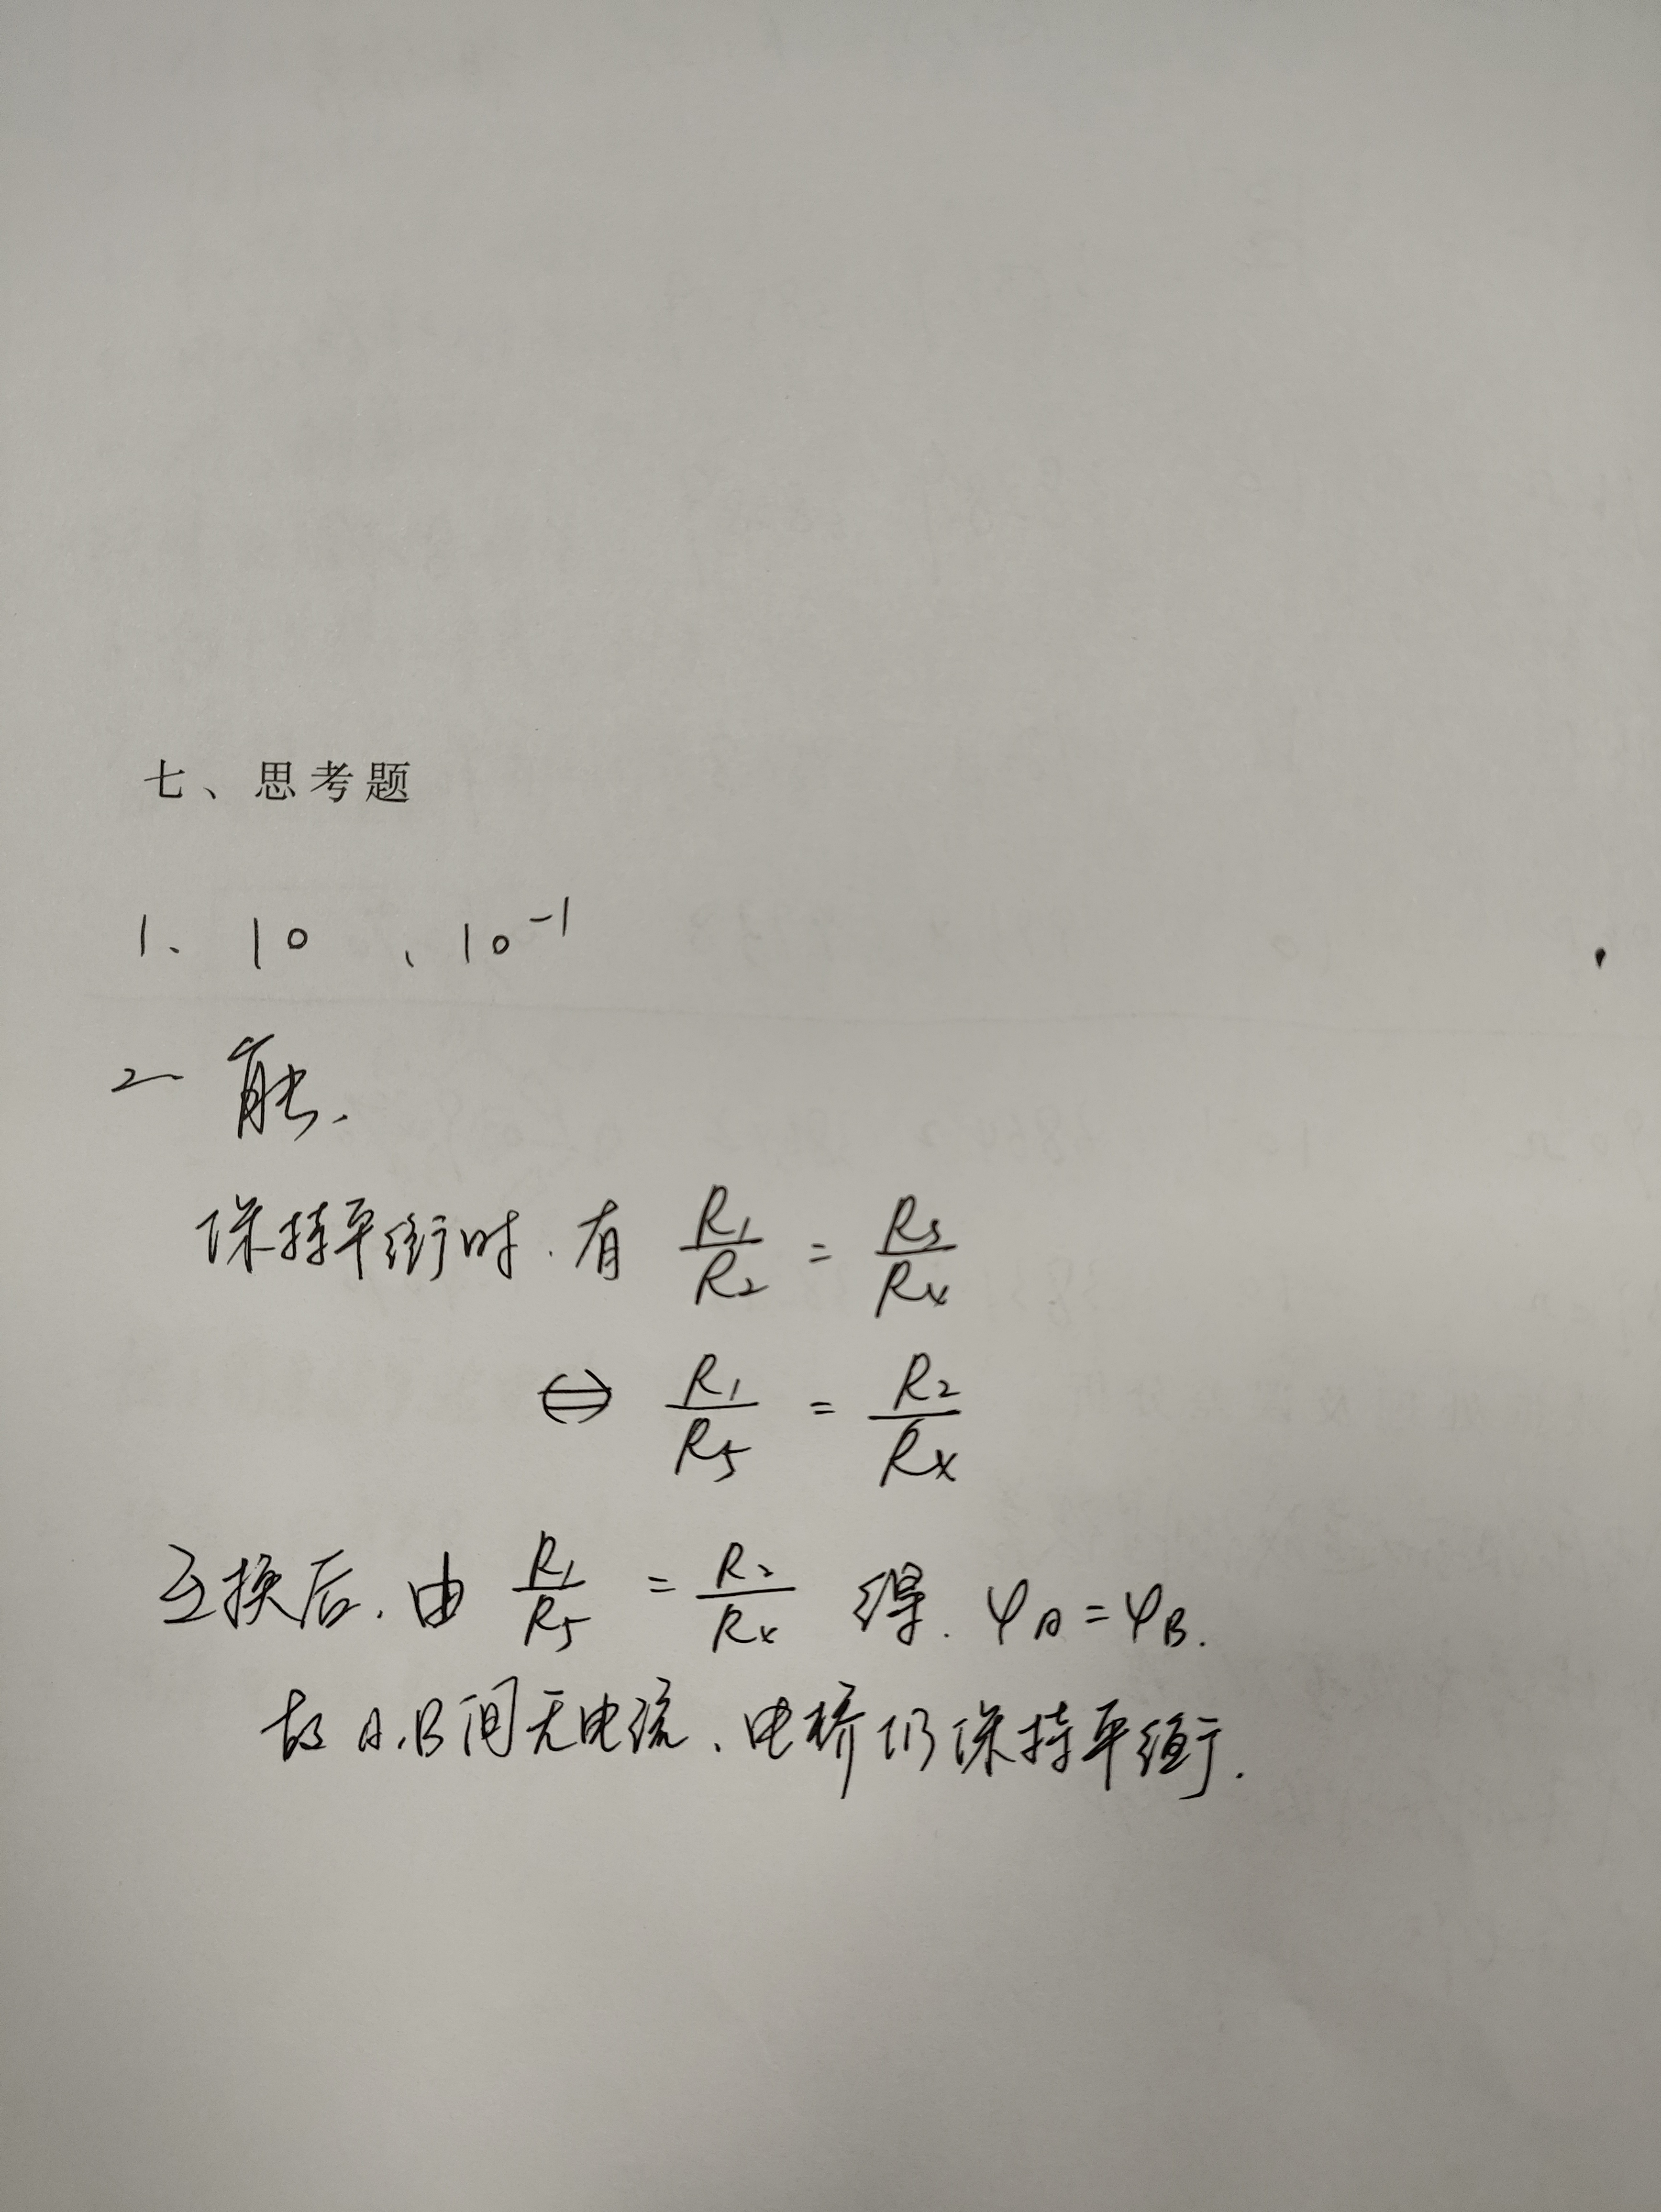 七、思考题
1、 10 、 10⁻¹
2 能.
保持平衡时.有 R₁/R₂ = Rs/Rx
⇔ R₁/Rs = R₂/Rx
互换后.由 R₁/Rs = R₂/Rx 得. φA=φB.
故A,B间无电流、电桥仍保持平衡.